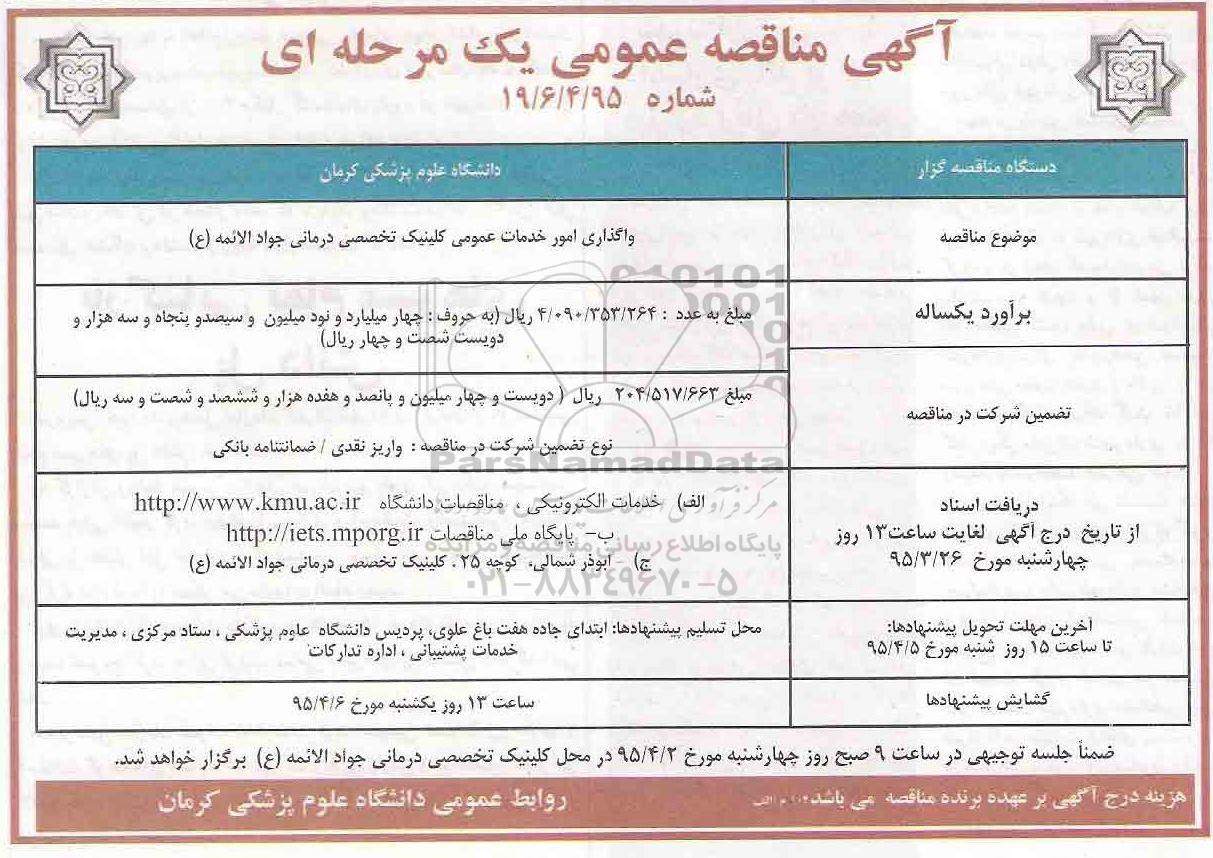 آگهی مناقصه عمومی یک مرحله ای
شماره ۱۹/۶/۴/۹۵
دستگاه مناقصه گزار
دانشگاه علوم پزشکی کرمان
موضوع مناقصه
واگذاری امور خدمات عمومی کلینیک تخصصی درمانی جواد الائمه (ع)
برآورد یکساله
مبلغ به عدد : ۴/۰۹۰/۳۵۳/۲۶۴ ریال (به حروف : چهار میلیارد و نود میلیون و سیصدو پنجاه و سه هزار و
دویست شصت و چهار ریال)
تضمین شرکت در مناقصه
مبلغ ۲۰۴/۵۱۷/۶۶۳ ریال ( دویست و چهار میلیون و پانصد و هفده هزار و ششصد و شصت و سه ریال)
نوع تضمین شرکت در مناقصه : واریز نقدی / ضمانتنامه بانکی
دریافت اسناد
از تاریخ درج آگهی لغایت ساعت۱۳ روز
چهارشنبه مورخ ۹۵/۳/۲۶
الف) خدمات الکترونیکی ، مناقصات دانشگاه http://www.kmu.ac.ir
ب- پایگاه ملی مناقصات http://iets.mporg.ir
ج) - ابوذر شمالی، کوچه ۲۵ ، کلینیک تخصصی درمانی جواد الائمه (ع)
آخرین مهلت تحویل پیشنهادها:
تا ساعت ۱۵ روز شنبه مورخ ۹۵/۴/۵
محل تسلیم پیشنهادها: ابتدای جاده هفت باغ علوی، پردیس دانشگاه علوم پزشکی ، ستاد مرکزی ، مدیریت
خدمات پشتیبانی ، اداره تدارکات
گشایش پیشنهادها
ساعت ۱۳ روز یکشنبه مورخ ۹۵/۴/۶
ضمناً جلسه توجیهی در ساعت ۹ صبح روز چهارشنبه مورخ ۹۵/۴/۲ در محل کلینیک تخصصی درمانی جواد الائمه (ع) برگزار خواهد شد.
هزینه درج آگهی بر عهده برنده مناقصه می باشد
روابط عمومی دانشگاه علوم پزشکی کرمان
ParsNamadData
پایگاه اطلاع رسانی مناقصه و مزایده
۰۲۱-۸۸۳۴۹۶۷۰-۵